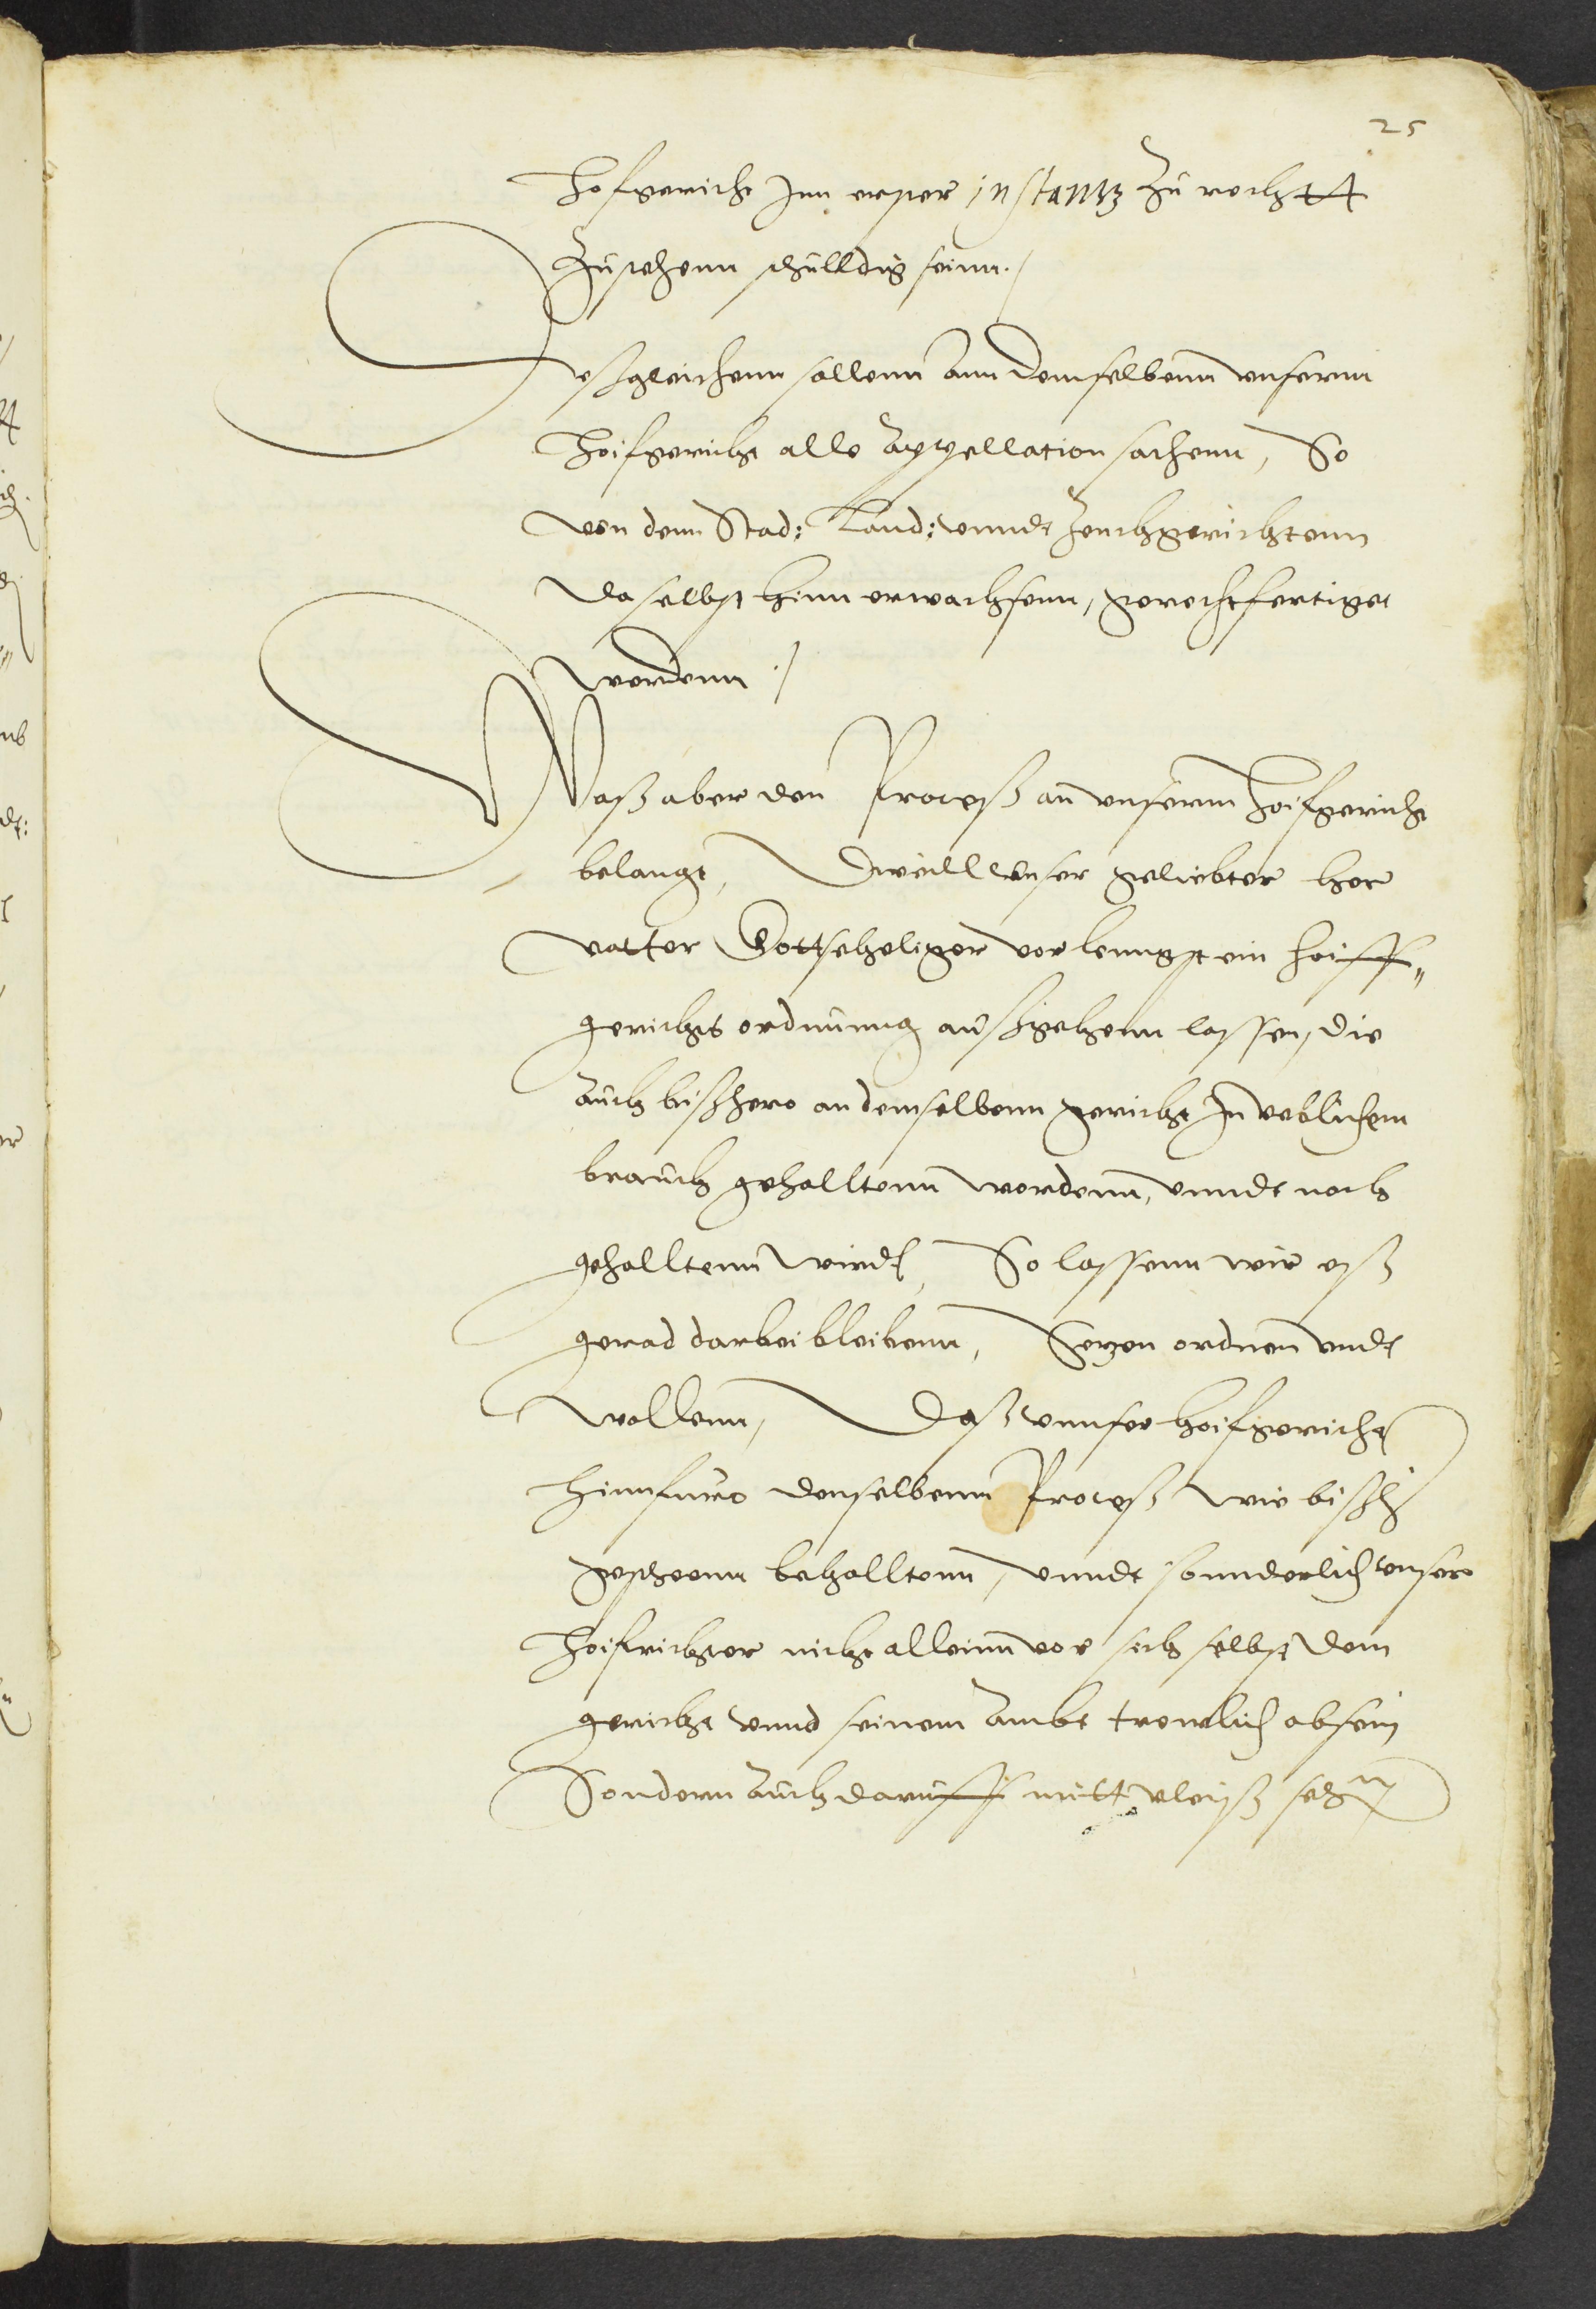 25
Hofgericht Inn erster instantz zu rechtt
Zustehenn schulldig seinn./
Deßgleichenn sollenn Ann demselbenn unserm
Hoifgericht alle Appellation sachenn, So
von denn Stad: Land: unndt Zenthgerichtenn
daselbst hinn erwachsenn, gerechtfertiget
werdenn ./
Waß aber den Proceß an unserm Hoifgericht
belangt, Dweill Unser geliebter her
vatter Gottseheliger vorlenngst ein hoiff„
gerichts ordnunng außgehenn lassen, die
Auch bißhero an demselbenn gericht In ueblichem
brauch gehalltenn wordenn, unndt noch
gehalltenn wirdt, So lassenn wir eß
gerad darbei bleibenn, Setzen ordnen undt
wollenn, Daß unnser hoifgericht
hinnfuro denselbenn Proceß wie bißh
gescheenn behalltenn, unndt sonnderlich unser
Hoifrichter nicht alleinn vor sich selbst dem
gericht unnd seinem Ambt trewlich obsein
Sondern Auch daruff mitt vleiß sehen